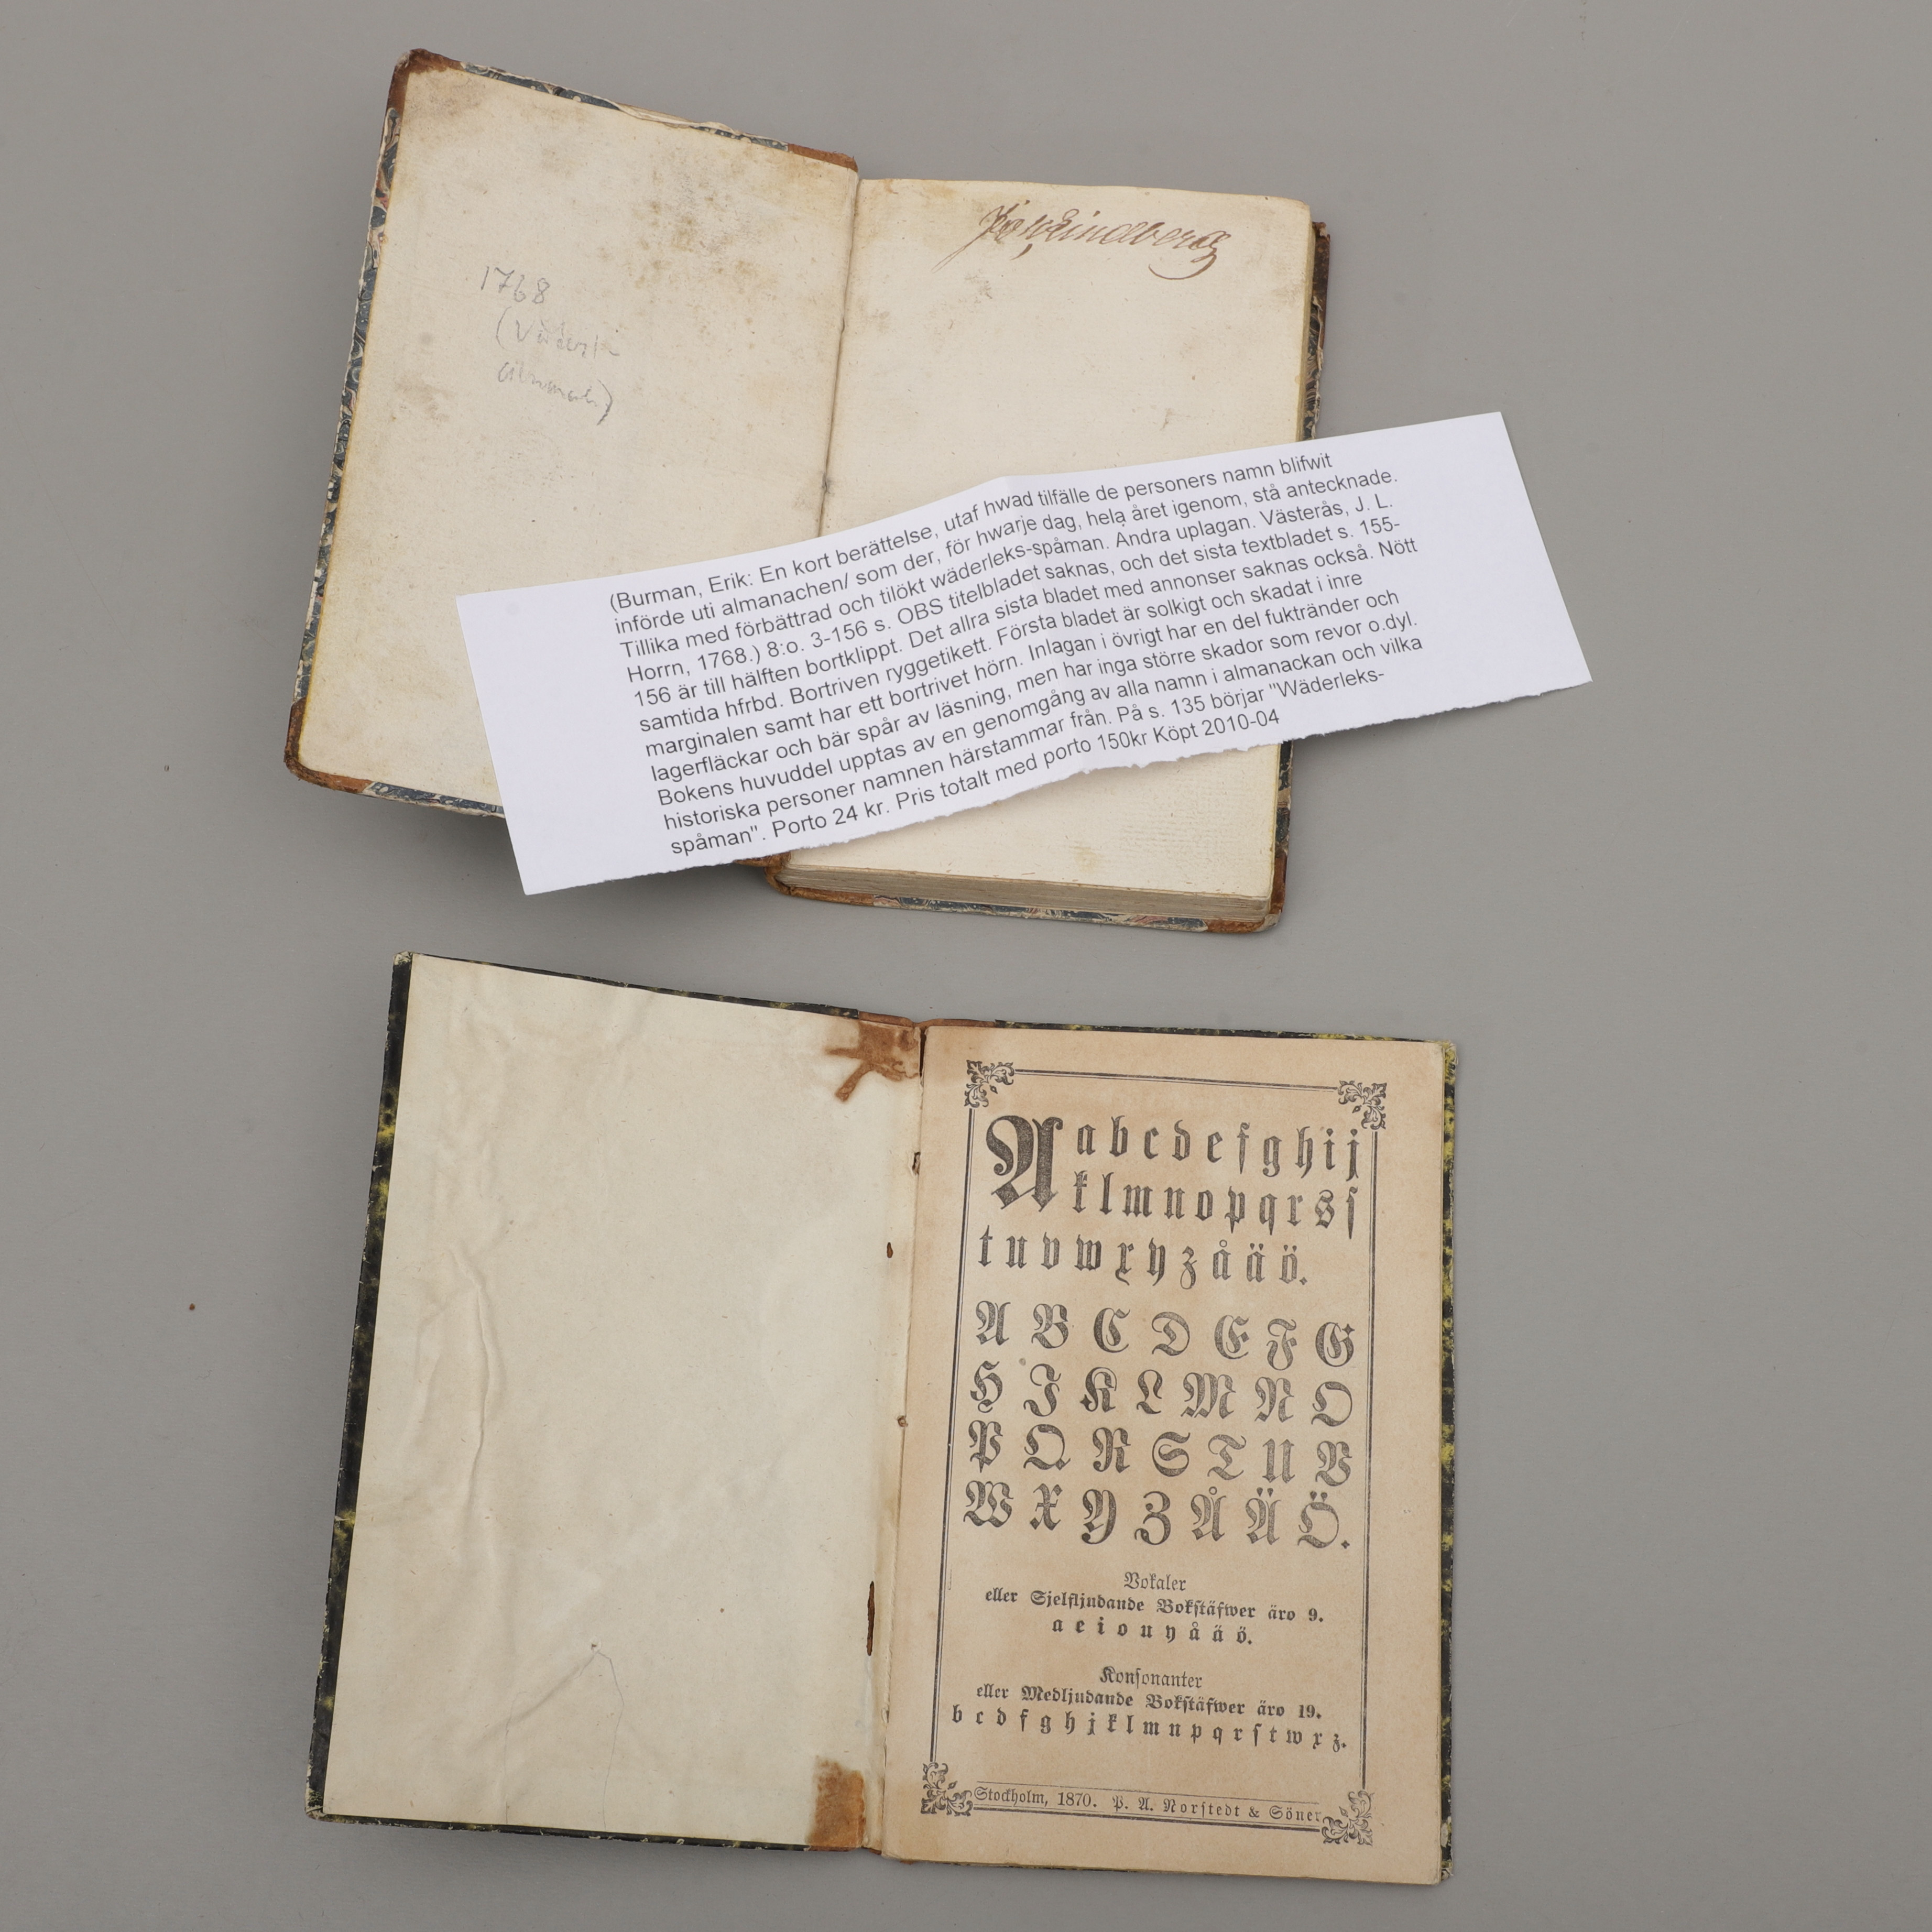 1768
(Väderl-
almanak)
Lindberg
(Burman, Erik: En kort berättelse, utaf hwad tilfälle de personers namn blifwit
införde uti almanachen/ som der, för hwarje dag, hela året igenom, stå antecknade.
Tillika med förbättrad och tilökt wäderleks-spåman. Andra uplagan. Västerås, J. L.
Horrn, 1768.) 8:o. 3-156 s. OBS titelbladet saknas, och det sista textbladet s. 155-
156 är till hälften bortklippt. Det allra sista bladet med annonser saknas också. Nött
samtida hfrbd. Bortriven ryggetikett. Första bladet är solkigt och skadat i inre
marginalen samt har ett bortrivet hörn. Inlagan i övrigt har en del fuktränder och
lagerfläckar och bär spår av läsning, men har inga större skador som revor o.dyl.
Bokens huvuddel upptas av en genomgång av alla namn i almanackan och vilka
historiska personer namnen härstammar från. På s. 135 börjar "Wäderleks-
spåman". Porto 24 kr. Pris totalt med porto 150kr Köpt 2010-04
A a b c d e f g h i j
k l m n o p q r s ſ
t u v w x y z å ä ö.
A B C D E F G
H J K L M N O
P Q R S T U V
W X Y Z Å Ä Ö.
Vokaler
eller Sjelfljudande Bokſtäfwer äro 9.
a e i o u y å ä ö.
Konſonanter
eller Medljudande Bokſtäfwer äro 19.
b c d f g h j k l m n p q r ſ t w x z.
Stockholm, 1870. P. A. Norſtedt & Söner